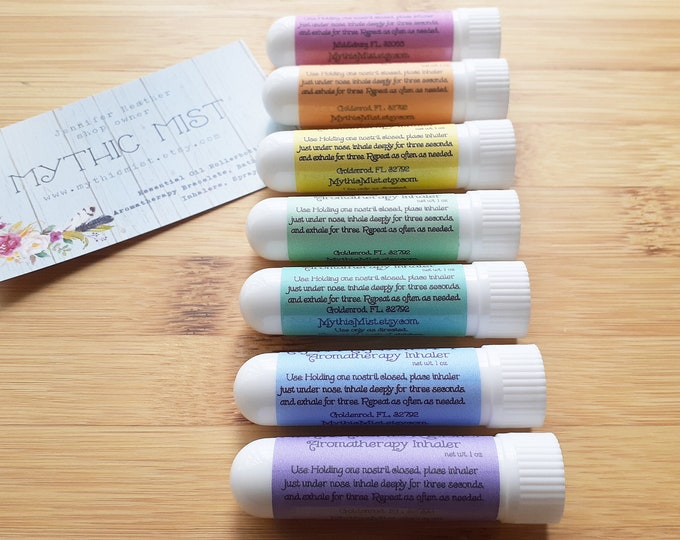 Jennifer Heather
Shop owner
MYTHIC MIST
www.mythicmist.etsy.com
Essential Oil Rollerb
Aromatherapy Bracelets, Bat
Inhalers, Spra
just under nose, inhale deeply for three seconds,
and exhale for three. Repeat as often as needed.
Middleburg, FL
MythisMist.etsy.com
Use Holding one nostril closed, place inhaler
just under nose, inhale deeply for three seconds,
and exhale for three. Repeat as often as needed.
Goldenrod, FL, 32792
MythisMist.etsy.com
net wt. 1 oz
Use Holding one nostril closed, place inhaler
just under nose, inhale deeply for three seconds,
and exhale for three. Repeat as often as needed.
Goldenrod, FL, 32792
MythisMist.etsy.com
Aromatherapy Inhaler
net wt. 1 oz
Use Holding one nostril closed, place inhaler
just under nose, inhale deeply for three seconds,
and exhale for three. Repeat as often as needed.
Goldenrod, FL, 32792
Aromatherapy Inhaler
net wt. 1 oz
Use Holding one nostril closed, place inhaler
just under nose, inhale deeply for three seconds,
and exhale for three. Repeat as often as needed.
Goldenrod, FL, 32792
MythisMist.etsy.com
Use only as directed.
Aromatherapy Inhaler
net wt. 1 oz
Use Holding one nostril closed, place inhaler
just under nose, inhale deeply for three seconds,
and exhale for three. Repeat as often as needed.
Goldenrod, FL, 32792
MythisMist.etsy.com
Aromatherapy Inhaler
net wt. 1 oz
Use Holding one nostril closed, place inhaler
just under nose, inhale deeply for three seconds,
and exhale for three. Repeat as often as needed.